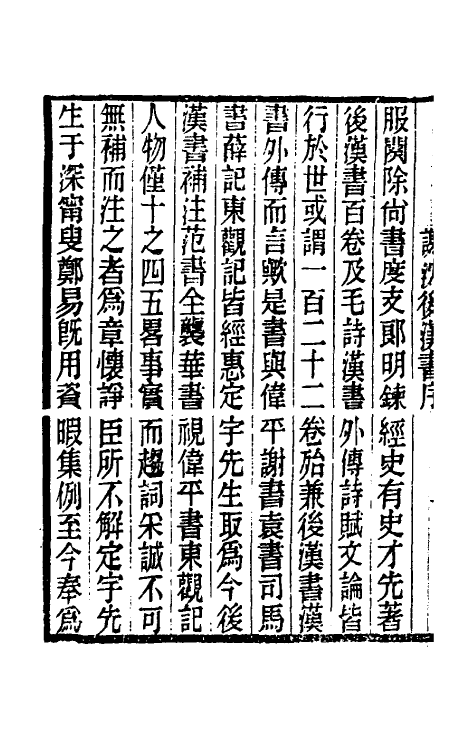 謝沈後漢書序
服闋除尚書度支郎明鍊經史有史才先著
後漢書百卷及毛詩漢書外傳詩賦文論皆
行於世或謂一百二十二卷殆兼後漢書漢
書外傳而言歟是書與偉平謝書袁書司馬
書薛記東觀記皆經惠定宇先生取爲今後
漢書補注范書全襲華書視偉平書東觀記
人物僅十之四五畧事實而趨詞采誠不可
無補而注之者爲章懷諍臣所不解定宇先
生于深甯叟鄭易旣用資暇集例至今奉爲